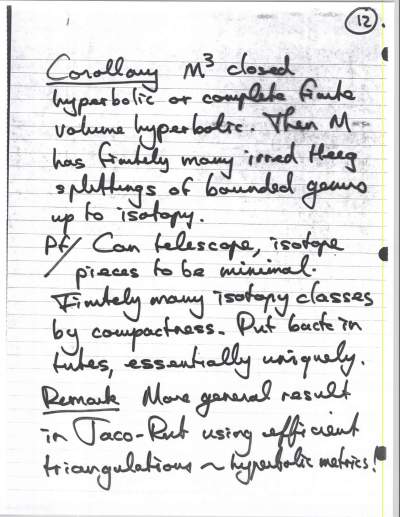 12
Corollary M³ closed
hyperbolic or complete finite
volume hyperbolic. Then M
has finitely many irred Heeg
splittings of bounded genus
up to isotopy.
Pf/ Can telescope, isotope
pieces to be minimal.
Finitely many isotopy classes
by compactness. Put back in
tubes, essentially uniquely.
Remark More general result
in Jaco-Rub using efficient
triangulations ~ hyperbolic metrics!